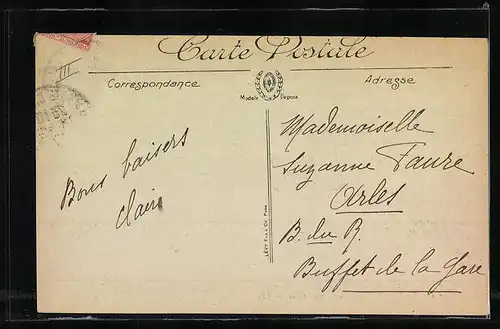 Carte Postale
Correspondance
Adresse
Modèle Déposé
III
Bons baisers
Claire
Mademoiselle
Suzanne Faure
Arles
B. du R.
Buffet de la Gare